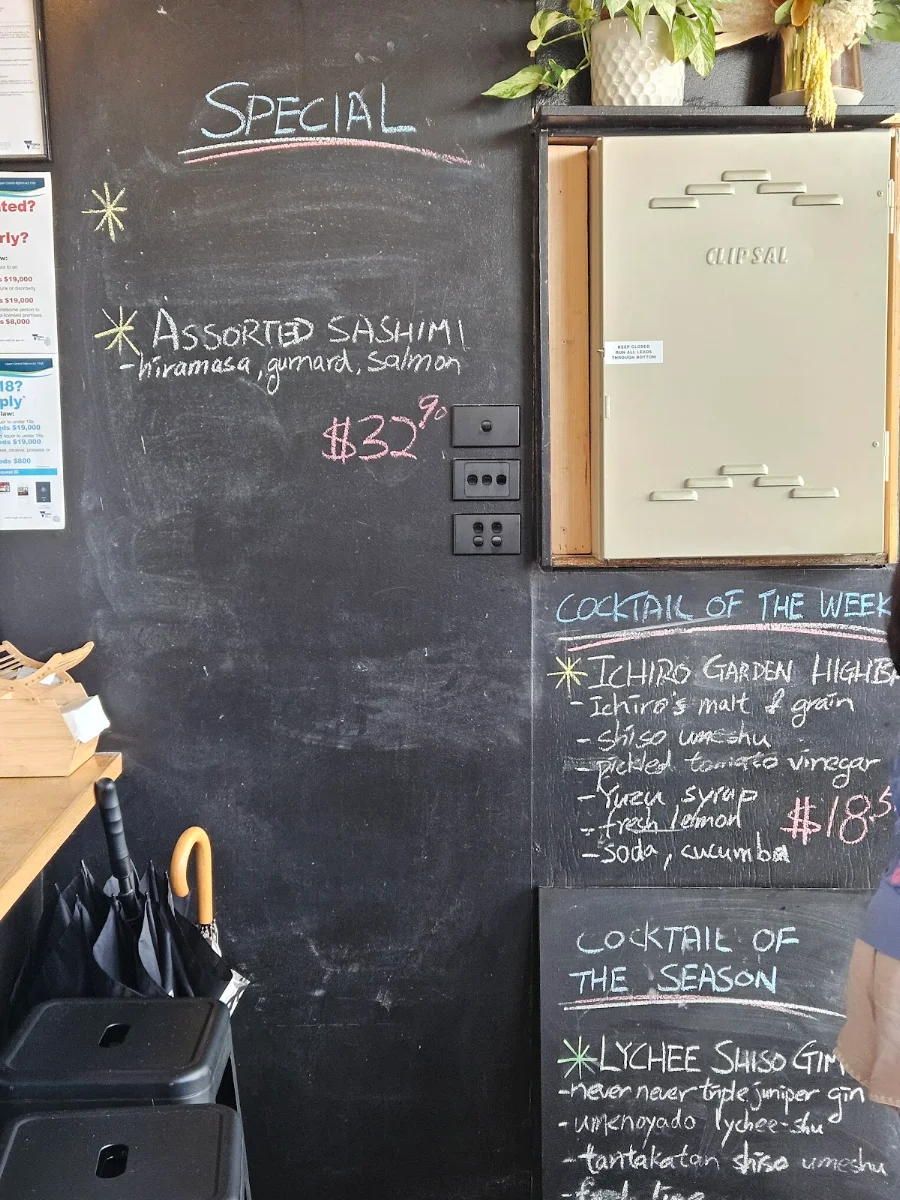 SPECIAL
ASSORTED SASHIMI
-hiramasa, gurnard, salmon
$32.90
CLIPSAL
KEEP CLOSED
RUN ALL LEADS
THROUGH BOTTOM
COCKTAIL OF THE WEEK
ICHIRO GARDEN
- Ichiro's malt & grain
- shiso umeshu
- pickled tomato vinegar
- Yuzu syrup
- fresh lemon
- soda, cucumba
$18.5
COCKTAIL OF
THE SEASON
LYCHEE SHISO
-never never triple juniper gin
-umenoyado lychee-shu
-tantakatan shiso umeshu
ated?
rly?
s $19,000
s $19,000
s $8,000
18?
ply
law:
ds $19,000
ds $19,000
eds $800